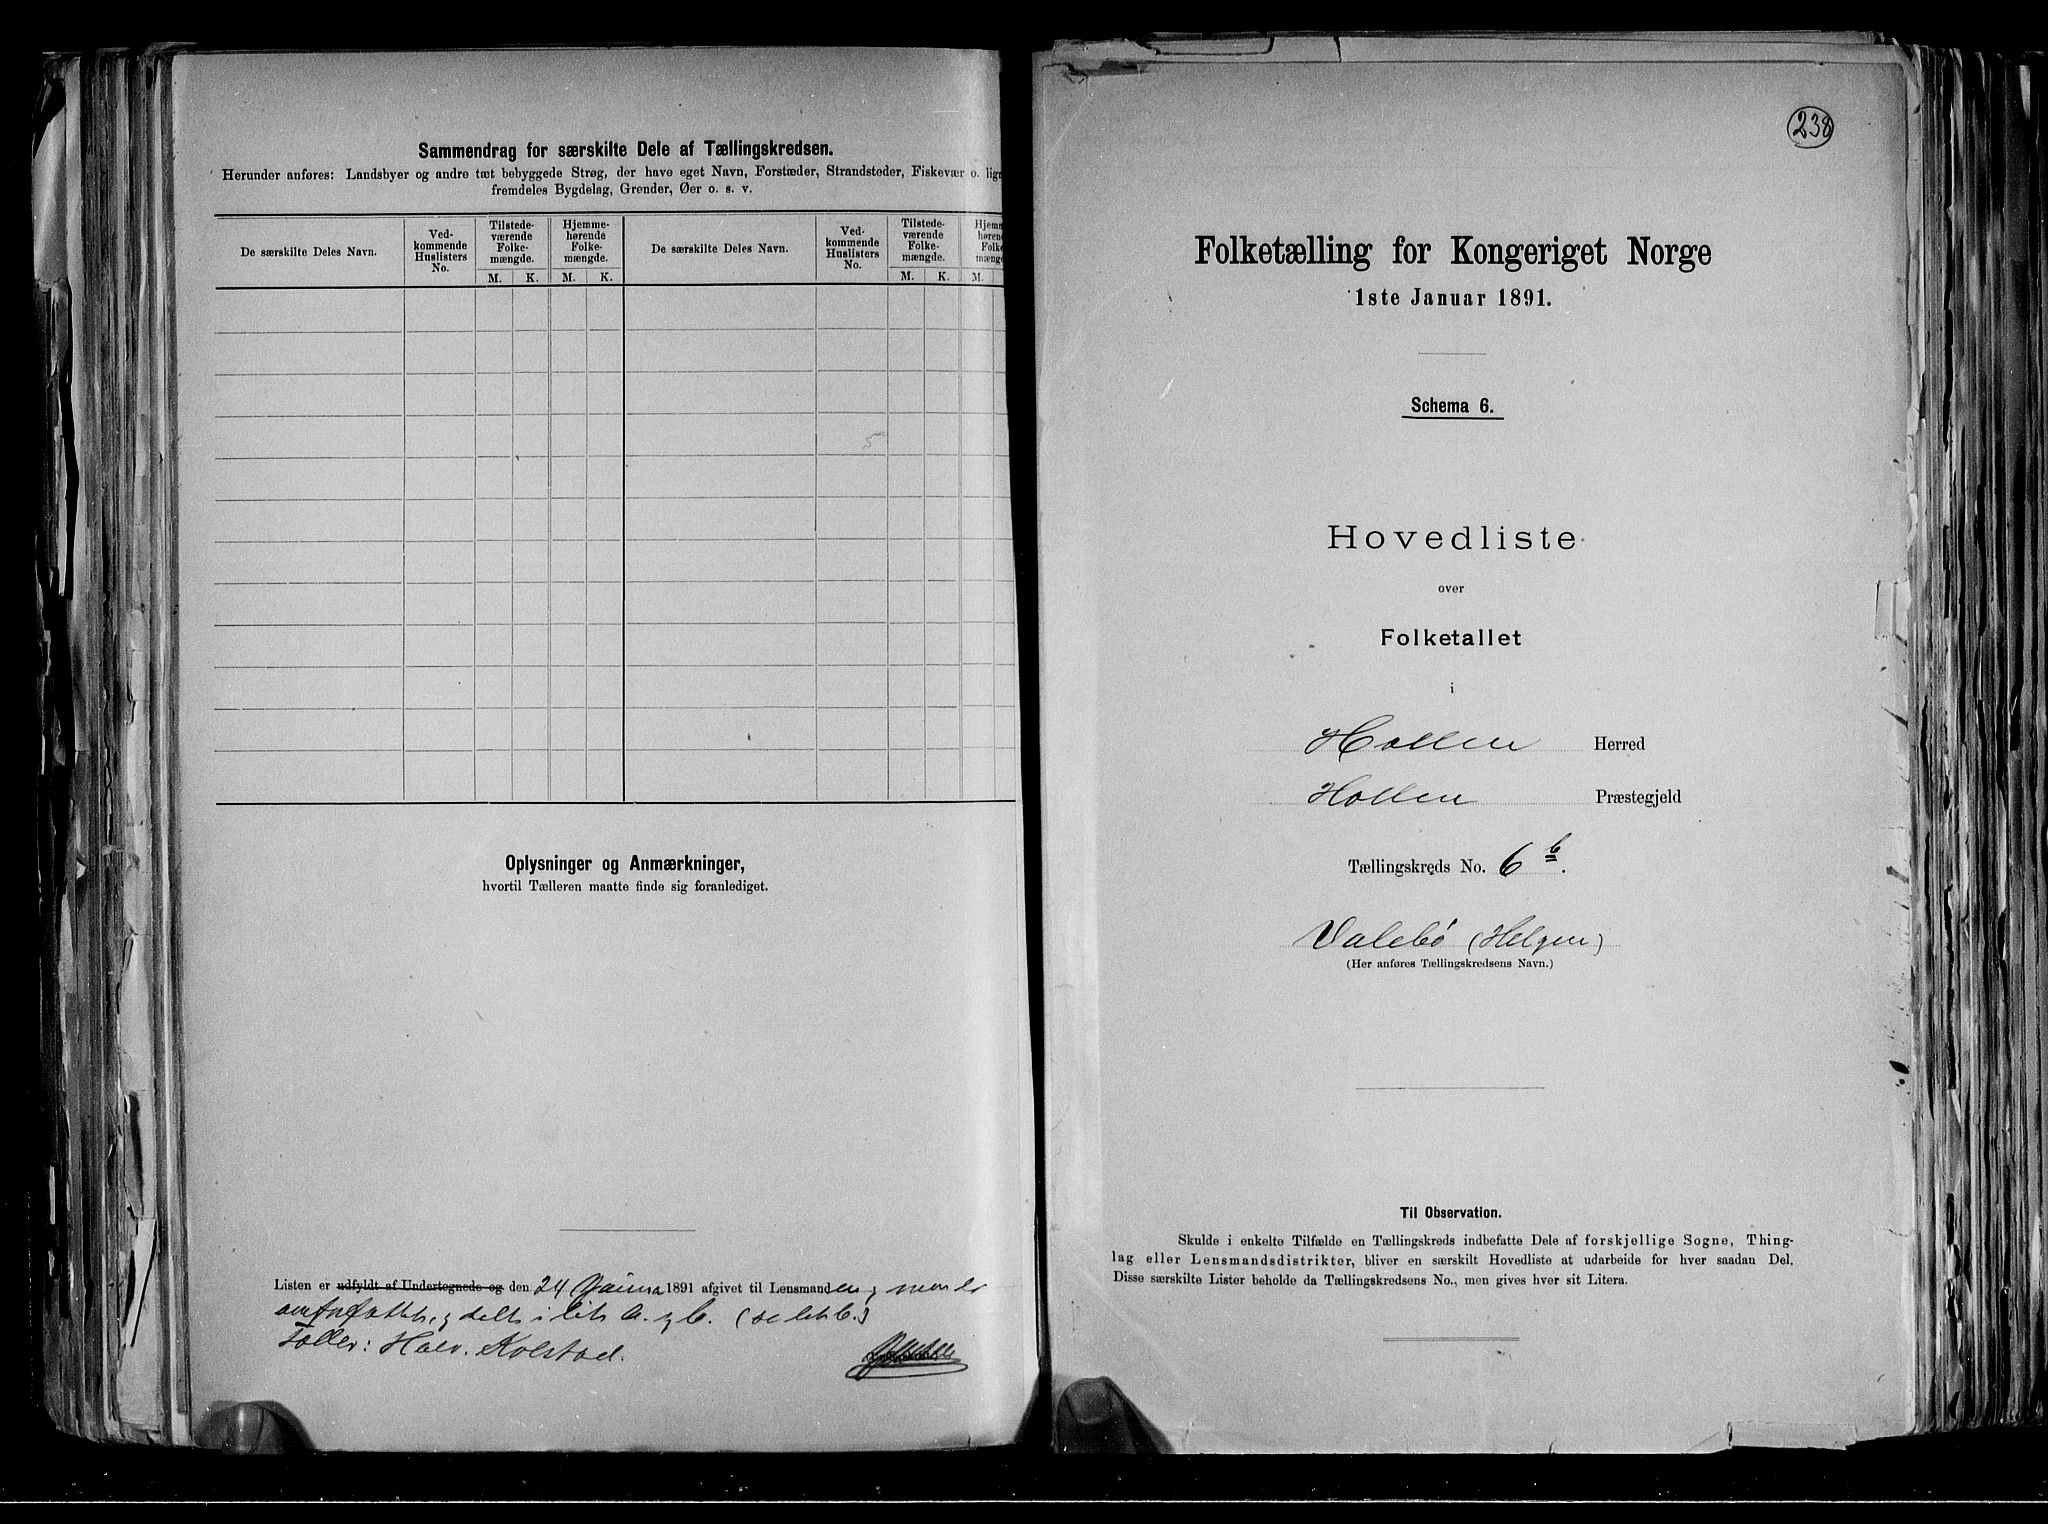 Sammendrag for særskilte Dele af Tællingskredsen.
Herunder anføres: Landsbyer og andre tæt bebyggede Strøg, der have eget Navn, Forstæder, Strandsteder, Fiskevær o. lign
fremdeles Bygdelag, Grender, Øer o. s. v.
De særskilte Deles Navn.
Ved-
kommende
Huslisters
No.
Tilstede-
værende
Folke-
mængde.
Hjemme-
hørende
Folke-
mængde.
De særskilte Deles Navn.
Ved-
kommende
Huslisters
No.
Tilstede-
værende
Folke-
mængde.
Hjemm
hørend
Folke
mængd
M. K. M. K. M. K. M.
5
Oplysninger og Anmærkninger,
hvortil Tælleren maatte finde sig foranlediget.
Listen er udfyldt af Undertegnede og den 24 Januar 1891 afgivet til Lensmanden,
omforfattet, og delt i lit. a. og b. (se lit b.)
Tæller: Halv. Kolstad.
238
Folketælling for Kongeriget Norge
1ste Januar 1891.
Schema 6.
Hovedliste
over
Folketallet
i
Hollen Herred
Hollen Præstegjeld
Tællingskreds No. 6 b.
Valebø (Helgen)
(Her anføres Tællingskredsens Navn.)
Til Observation.
Skulde i enkelte Tilfælde en Tællingskreds indbefatte Dele af forskjellige Sogne, Thing-
lag eller Lensmandsdistrikter, bliver en særskilt Hovedliste at udarbeide for hver saadan Del.
Disse særskilte Lister beholde da Tællingskredsens No., men gives hver sit Litera.